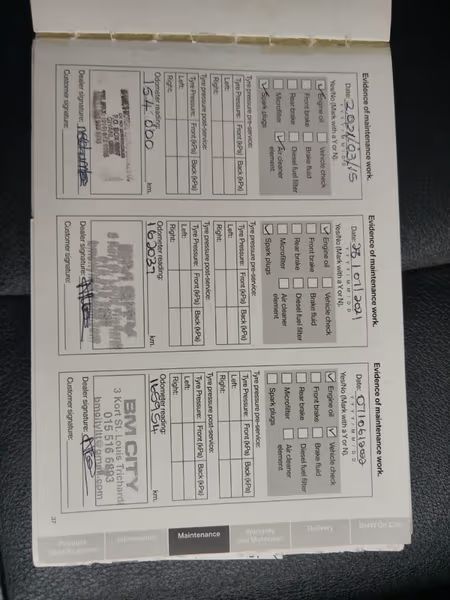 Evidence of maintenance work.
Date: 2021/03/15
Y Y Y Y M M D D
Yes/No (Mark with a Y or N).
Engine oil
Vehicle check
Front brake
Brake fluid
Rear brake
Diesel fuel filter
Microfilter
Air cleaner element
Spark plugs
Tyre pressure pre-service:
Tyre Pressure: Front (kPa) Back (kPa)
Left:
Right:
Tyre pressure post-service:
Tyre Pressure: Front (kPa) Back (kPa)
Left:
Right:
Odometer reading:
154000 km.
Dealer signature:
Customer signature:
Evidence of maintenance work.
Date: 23/07/2021
Y Y Y Y M M D D
Yes/No (Mark with a Y or N).
Engine oil
Vehicle check
Front brake
Brake fluid
Rear brake
Diesel fuel filter
Microfilter
Air cleaner element
Spark plugs
Tyre pressure pre-service:
Tyre Pressure: Front (kPa) Back (kPa)
Left:
Right:
Tyre pressure post-service:
Tyre Pressure: Front (kPa) Back (kPa)
Left:
Right:
Odometer reading:
162027 km.
BM CITY
Dealer signature:
Customer signature:
Evidence of maintenance work.
Date:
Y Y Y Y M M D D
Yes/No (Mark with a Y or N).
Engine oil
Vehicle check
Front brake
Brake fluid
Rear brake
Diesel fuel filter
Microfilter
Air cleaner element
Spark plugs
Tyre pressure pre-service:
Tyre Pressure: Front (kPa) Back (kPa)
Left:
Right:
Tyre pressure post-service:
Tyre Pressure: Front (kPa) Back (kPa)
Left:
Right:
Odometer reading:
169904 km.
BM CITY
3 Kort St. Louis Trichardt
015 516 0893
Dealer signature:
Customer signature:
37
Maintenance
Warranty
Delivery